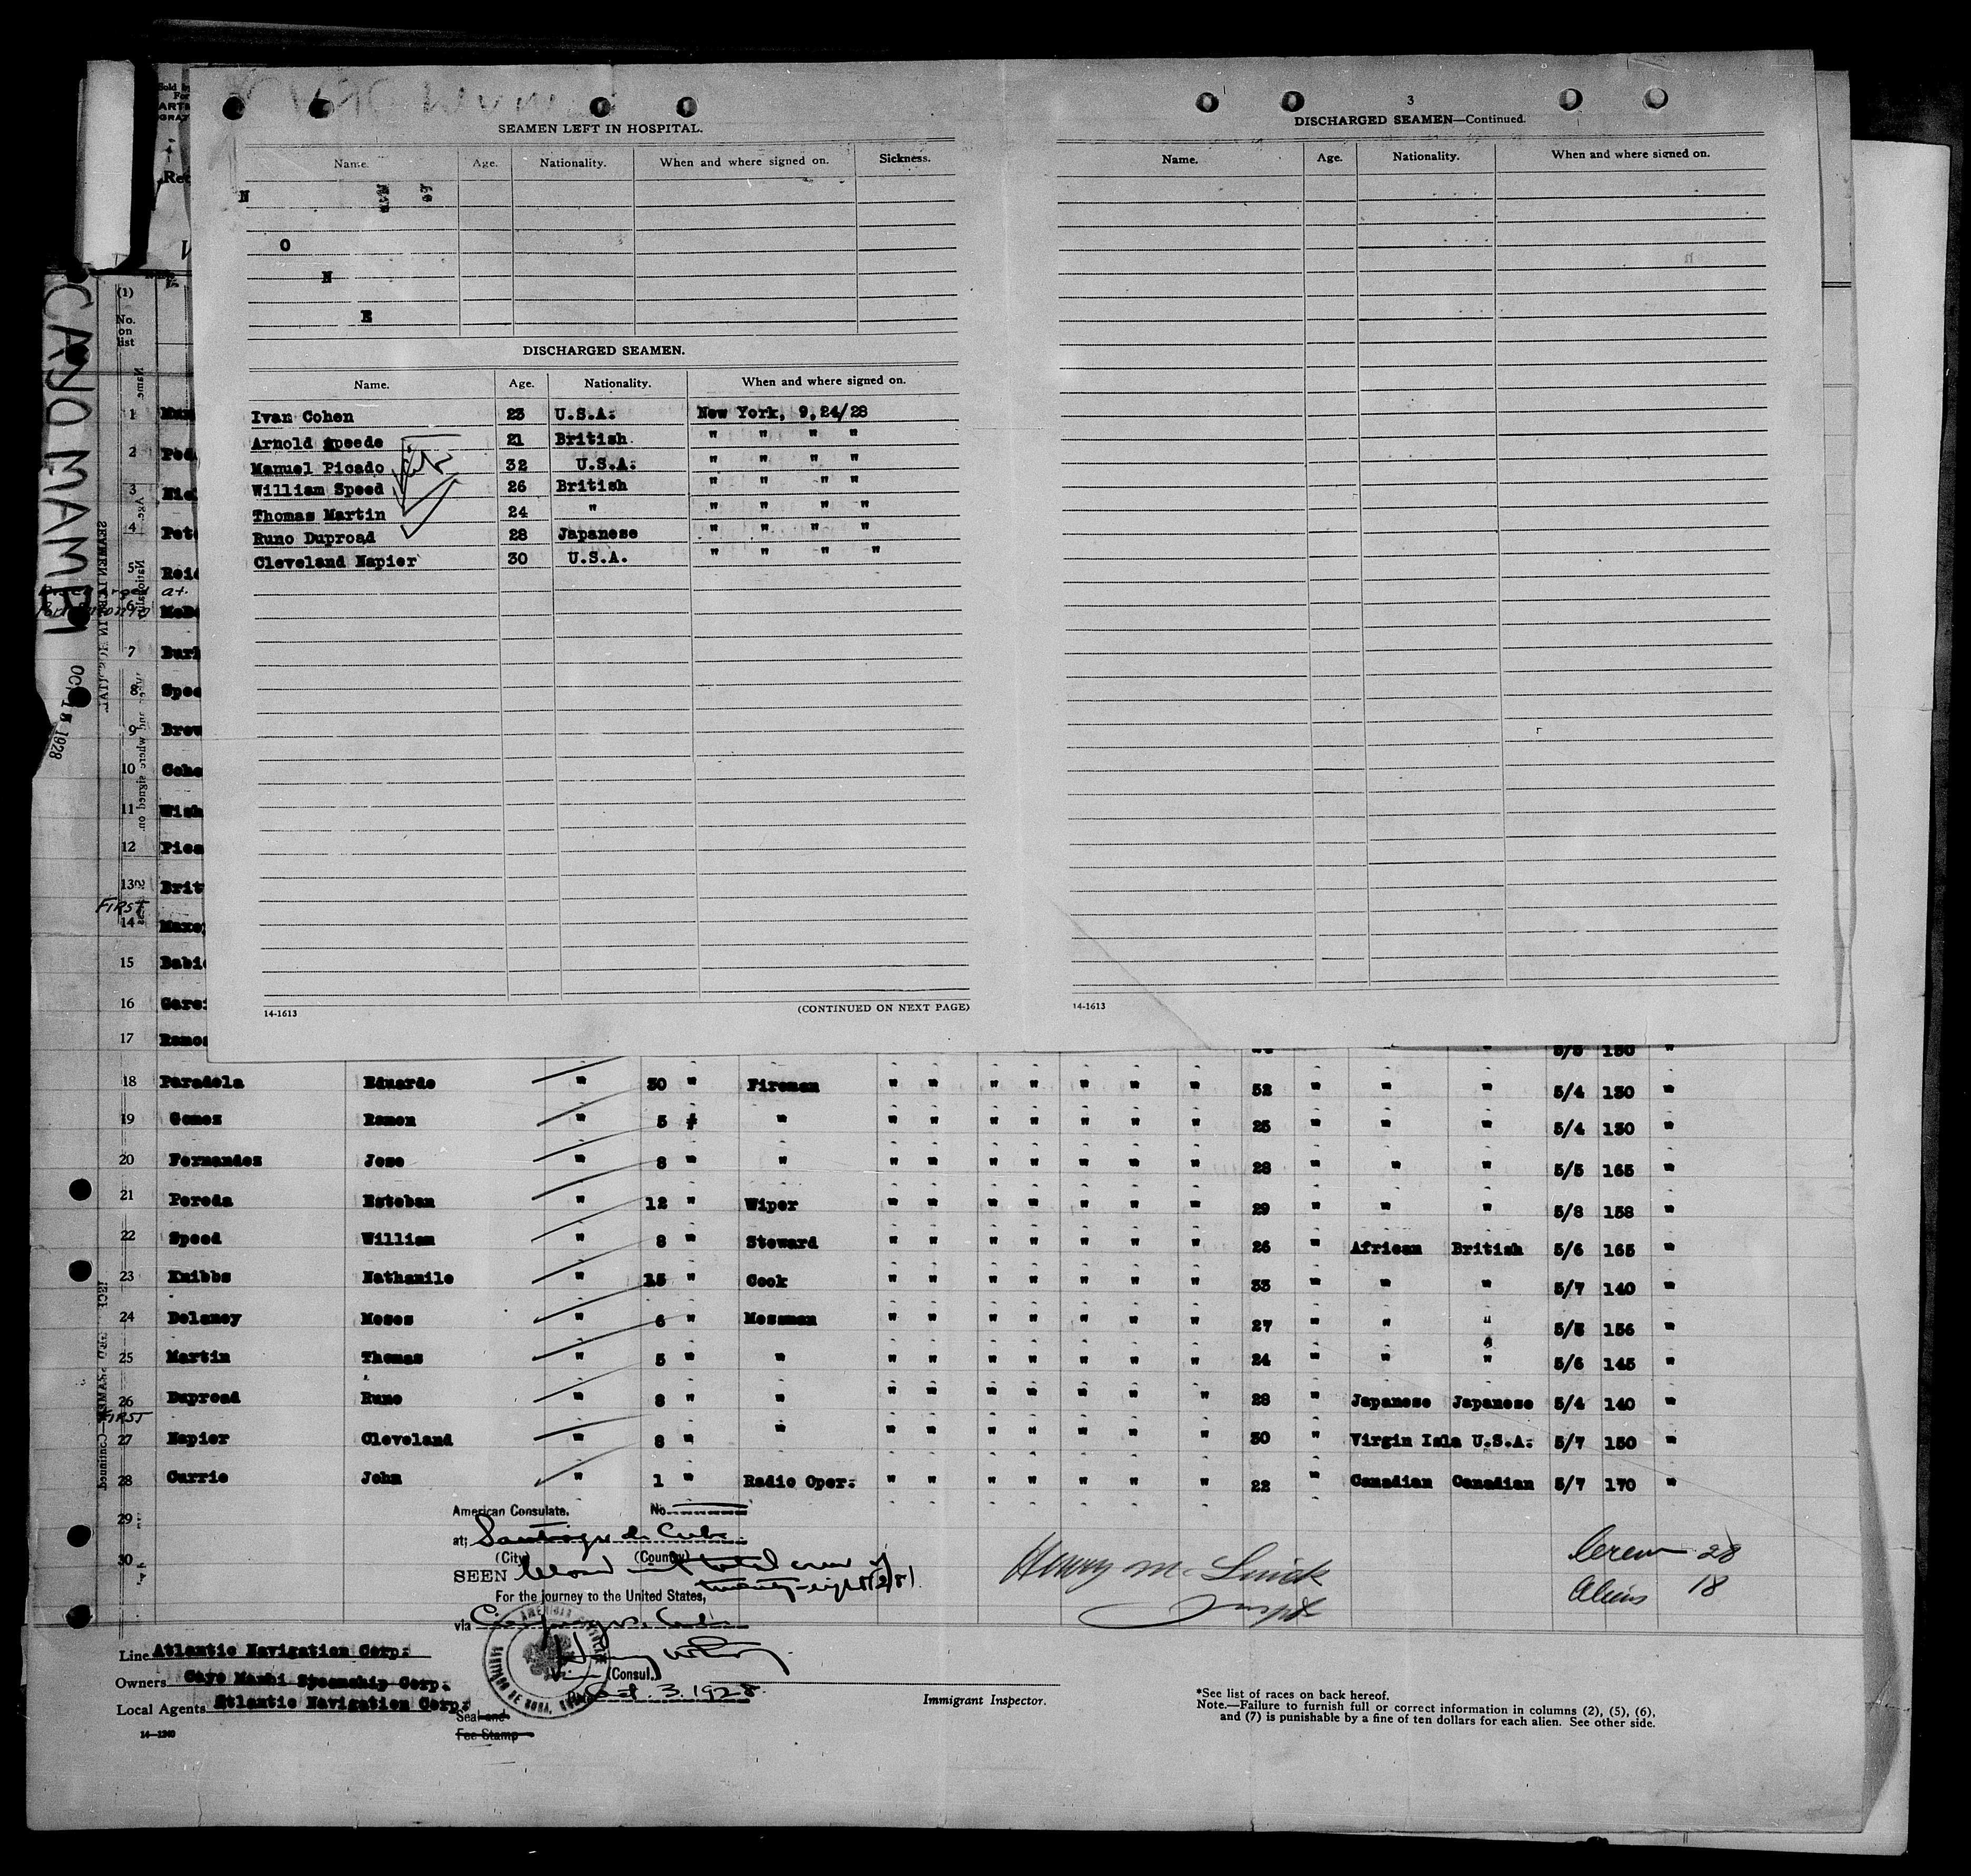 SEAMEN LEFT IN HOSPITAL.
Name. Age. Nationality. When and where signed on. Sickness.
N
O
N
E
DISCHARGED SEAMEN.
Name. Age. Nationality. When and where signed on.
Ivan Cohen 23 U.S.A. New York, 9,24/28
Arnold Speede 21 British " " " "
Manuel Picado 32 U.S.A. " " " "
William Speed 26 British " " " "
Thomas Martin 24 " " " " "
Runo Duproad 28 Japanese " " " "
Cleveland Napier 30 U.S.A. " " " "
14-1613 (CONTINUED ON NEXT PAGE)
3
DISCHARGED SEAMEN—Continued.
Name. Age. Nationality. When and where signed on.
14-1613
CAYO MAMBI
1928
(1)
No. on list
1
2 Ped
3
4 Pete
5 Reid
at
6
7
8 Spee
9 Brow
10 Cohe
11 Wish
12 Pica
13 Brit
FIRST
14
15 Babi
16 Garc
17 Ramos " " 5/5 150 "
18 Paradela Eduardo " 30 " Fireman " " " " " " " 52 " " " 5/4 130 "
19 Gomez Ramon " 5 " " " " " " " " " 25 " " " 5/4 130 "
20 Fernandez Jose " 8 " " " " " " " " " 28 " " " 5/5 165 "
21 Pereda Esteban " 12 " Wiper " " " " " " " 29 " " " 5/8 158 "
22 Speed William " 8 " Steward " " " " " " " 26 " African British 5/6 165 "
23 Knibbs Nathanile " 15 " Cook " " " " " " " 33 " " " 5/7 140 "
24 Delaney Moses " 6 " Messman " " " " " " " 27 " " " 5/5 156 "
25 Martin Thomas " 5 " " " " " " " " " 24 " " " 5/6 145 "
26 Duproad Runo " 8 " " " " " " " " " 28 " Japanese Japanese 5/4 140 "
FIRST
27 Napier Cleveland " 8 " " " " " " " " " 30 " Virgin Isla U.S.A. 5/7 150 "
28 Currie John " 1 " Radio Oper. " " " " " " " 22 " Canadian Canadian 5/7 170 "
29
30
American Consulate. No.
at; Santiago de Cuba
(City) (Country)
SEEN total crew of
twenty-eight (28)
For the journey to the United States,
via Cuba
(Consul.)
Oct. 3, 1928.
Seal and
Fee Stamp
Crew 28
Aliens 18
Line Atlantic Navigation Corp.
Owners Cayo Mambi Steamship Corp.
Local Agents Atlantic Navigation Corp.
14-1240
Immigrant Inspector.
*See list of races on back hereof.
Note.—Failure to furnish full or correct information in columns (2), (5), (6),
and (7) is punishable by a fine of ten dollars for each alien. See other side.